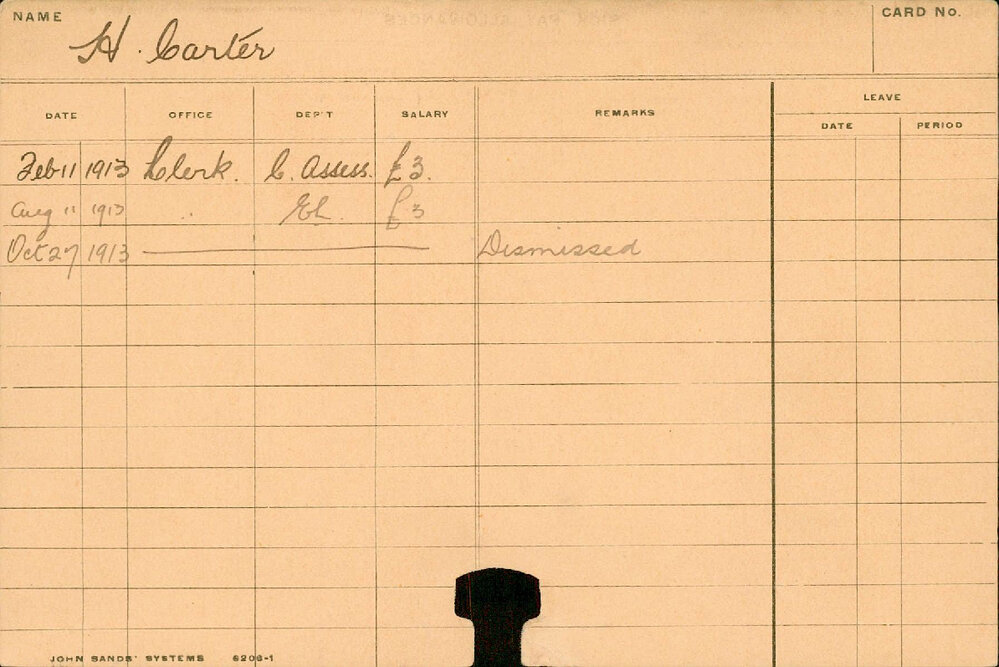 NAME
CARD No.
H. Carter
LEAVE
DATE OFFICE DEP'T SALARY REMARKS
DATE PERIOD
Feb 11 1913 Clerk. C. Assess. £3.
Aug 11 1913 " £3
Oct 27 1913 Dismissed
JOHN SANDS' SYSTEMS 6206-1